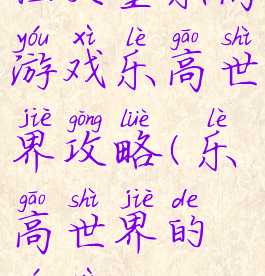 yóu xì lè gāo shì
游戏乐高世
jiè gōng lüè lè
界攻略(乐
gāo shì jiè de
高世界的